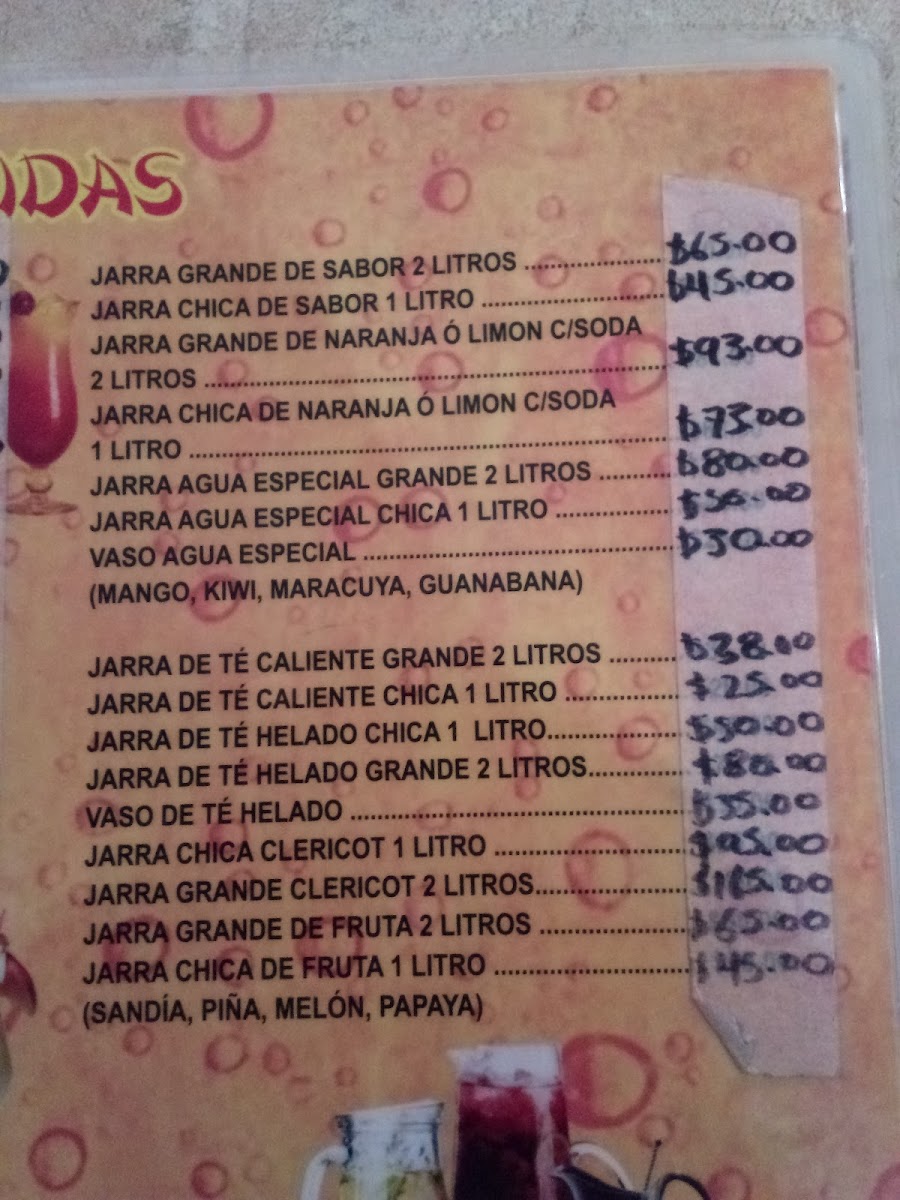 JARRA GRANDE DE SABOR 2 LITROS ..................... $65.00
JARRA CHICA DE SABOR 1 LITRO ............................ $45.00
JARRA GRANDE DE NARANJA Ó LIMON C/SODA
2 LITROS ....................................................................... $93.00
JARRA CHICA DE NARANJA Ó LIMON C/SODA
1 LITRO ......................................................................... $73.00
JARRA AGUA ESPECIAL GRANDE 2 LITROS ........... $80.00
JARRA AGUA ESPECIAL CHICA 1 LITRO .................
VASO AGUA ESPECIAL ............................................... $30.00
(MANGO, KIWI, MARACUYA, GUANABANA)
JARRA DE TÉ CALIENTE GRANDE 2 LITROS .......... $38.00
JARRA DE TÉ CALIENTE CHICA 1 LITRO ................. $25.00
JARRA DE TÉ HELADO CHICA 1 LITRO.................... $50.00
JARRA DE TÉ HELADO GRANDE 2 LITROS.............. $80.00
VASO DE TÉ HELADO .................................................. $35.00
JARRA CHICA CLERICOT 1 LITRO ............................ $95.00
JARRA GRANDE CLERICOT 2 LITROS......................
JARRA GRANDE DE FRUTA 2 LITROS ..................... $65.00
JARRA CHICA DE FRUTA 1 LITRO ............................ $45.00
(SANDÍA, PIÑA, MELÓN, PAPAYA)